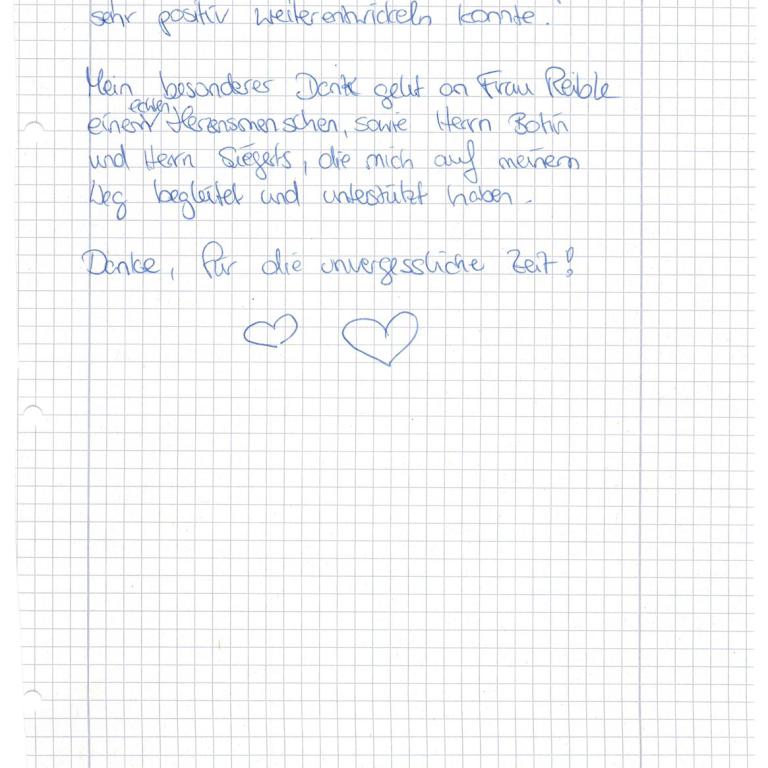 sehr positiv weiterentwickeln konnte.
Mein besonderes Dank geht an Frau Reible
echten
einem Herzensmenschen, sowie Herrn Bohn
und Herrn Siegerts, die mich auf meinem
Weg begleitet und unterstützt haben.
Danke, für die unvergessliche Zeit!